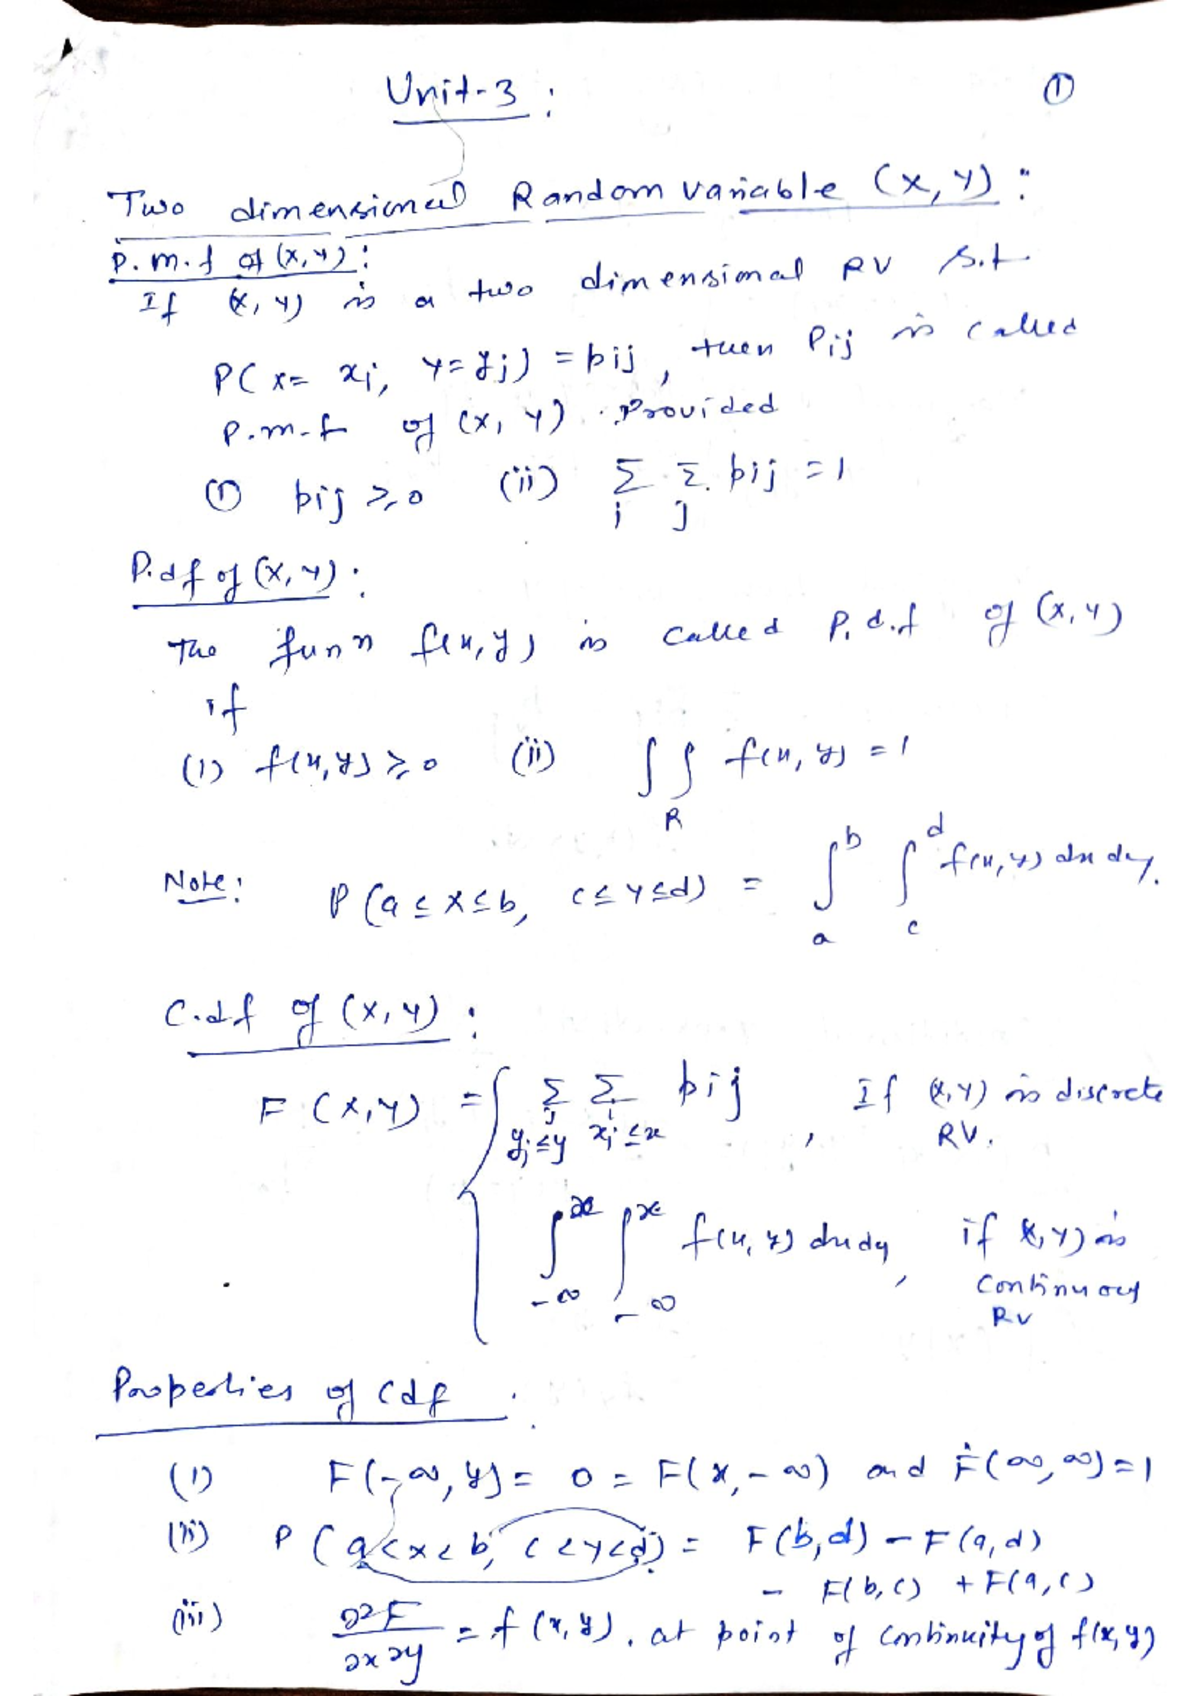 Unit-3 :
①
Two dimensional Random variable (X, Y) :
P.m.f of (X, Y) :
If (X, Y) is a two dimensional RV s.t
P( X = xi, Y = yj) = pij , then Pij is called
P.m.f of (X, Y) . Provided
① pij ≥ 0 (ii) Σi Σj pij = 1
P.df of (X, Y) :
The funn f(x, y) is called P.d.f of (X, Y)
if
(i) f(x, y) ≥ 0 (ii) ∫∫R f(x, y) = 1
Note : P (a ≤ X ≤ b, c ≤ Y ≤ d) = ∫_a^b ∫_c^d f(x, y) dx dy.
C.df of (X, Y) :
F (X, Y) = { Σj yj ≤ y Σi xi ≤ x pij , If (X, Y) is discrete RV.
∫_{-∞}^x ∫_{-∞}^x f(x, y) dx dy , if (X, Y) is Continuous RV
Properties of cdf :
(i) F(-∞, y) = 0 = F(x, -∞) and F(∞, ∞) = 1
(ii) P (a < X < b, c < Y < d) = F(b, d) - F(a, d)
- F(b, c) + F(a, c)
(iii) ∂²F/∂x∂y = f (x, y) , at point of continuity of f(x, y)